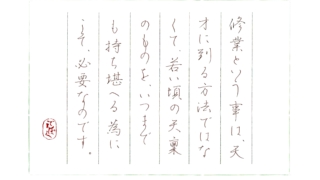 修業という事は、天
才に到る方法ではな
くて、若い頃の天稟
のものを、いつまで
も持ち堪へる為に
こそ、必要なのです。